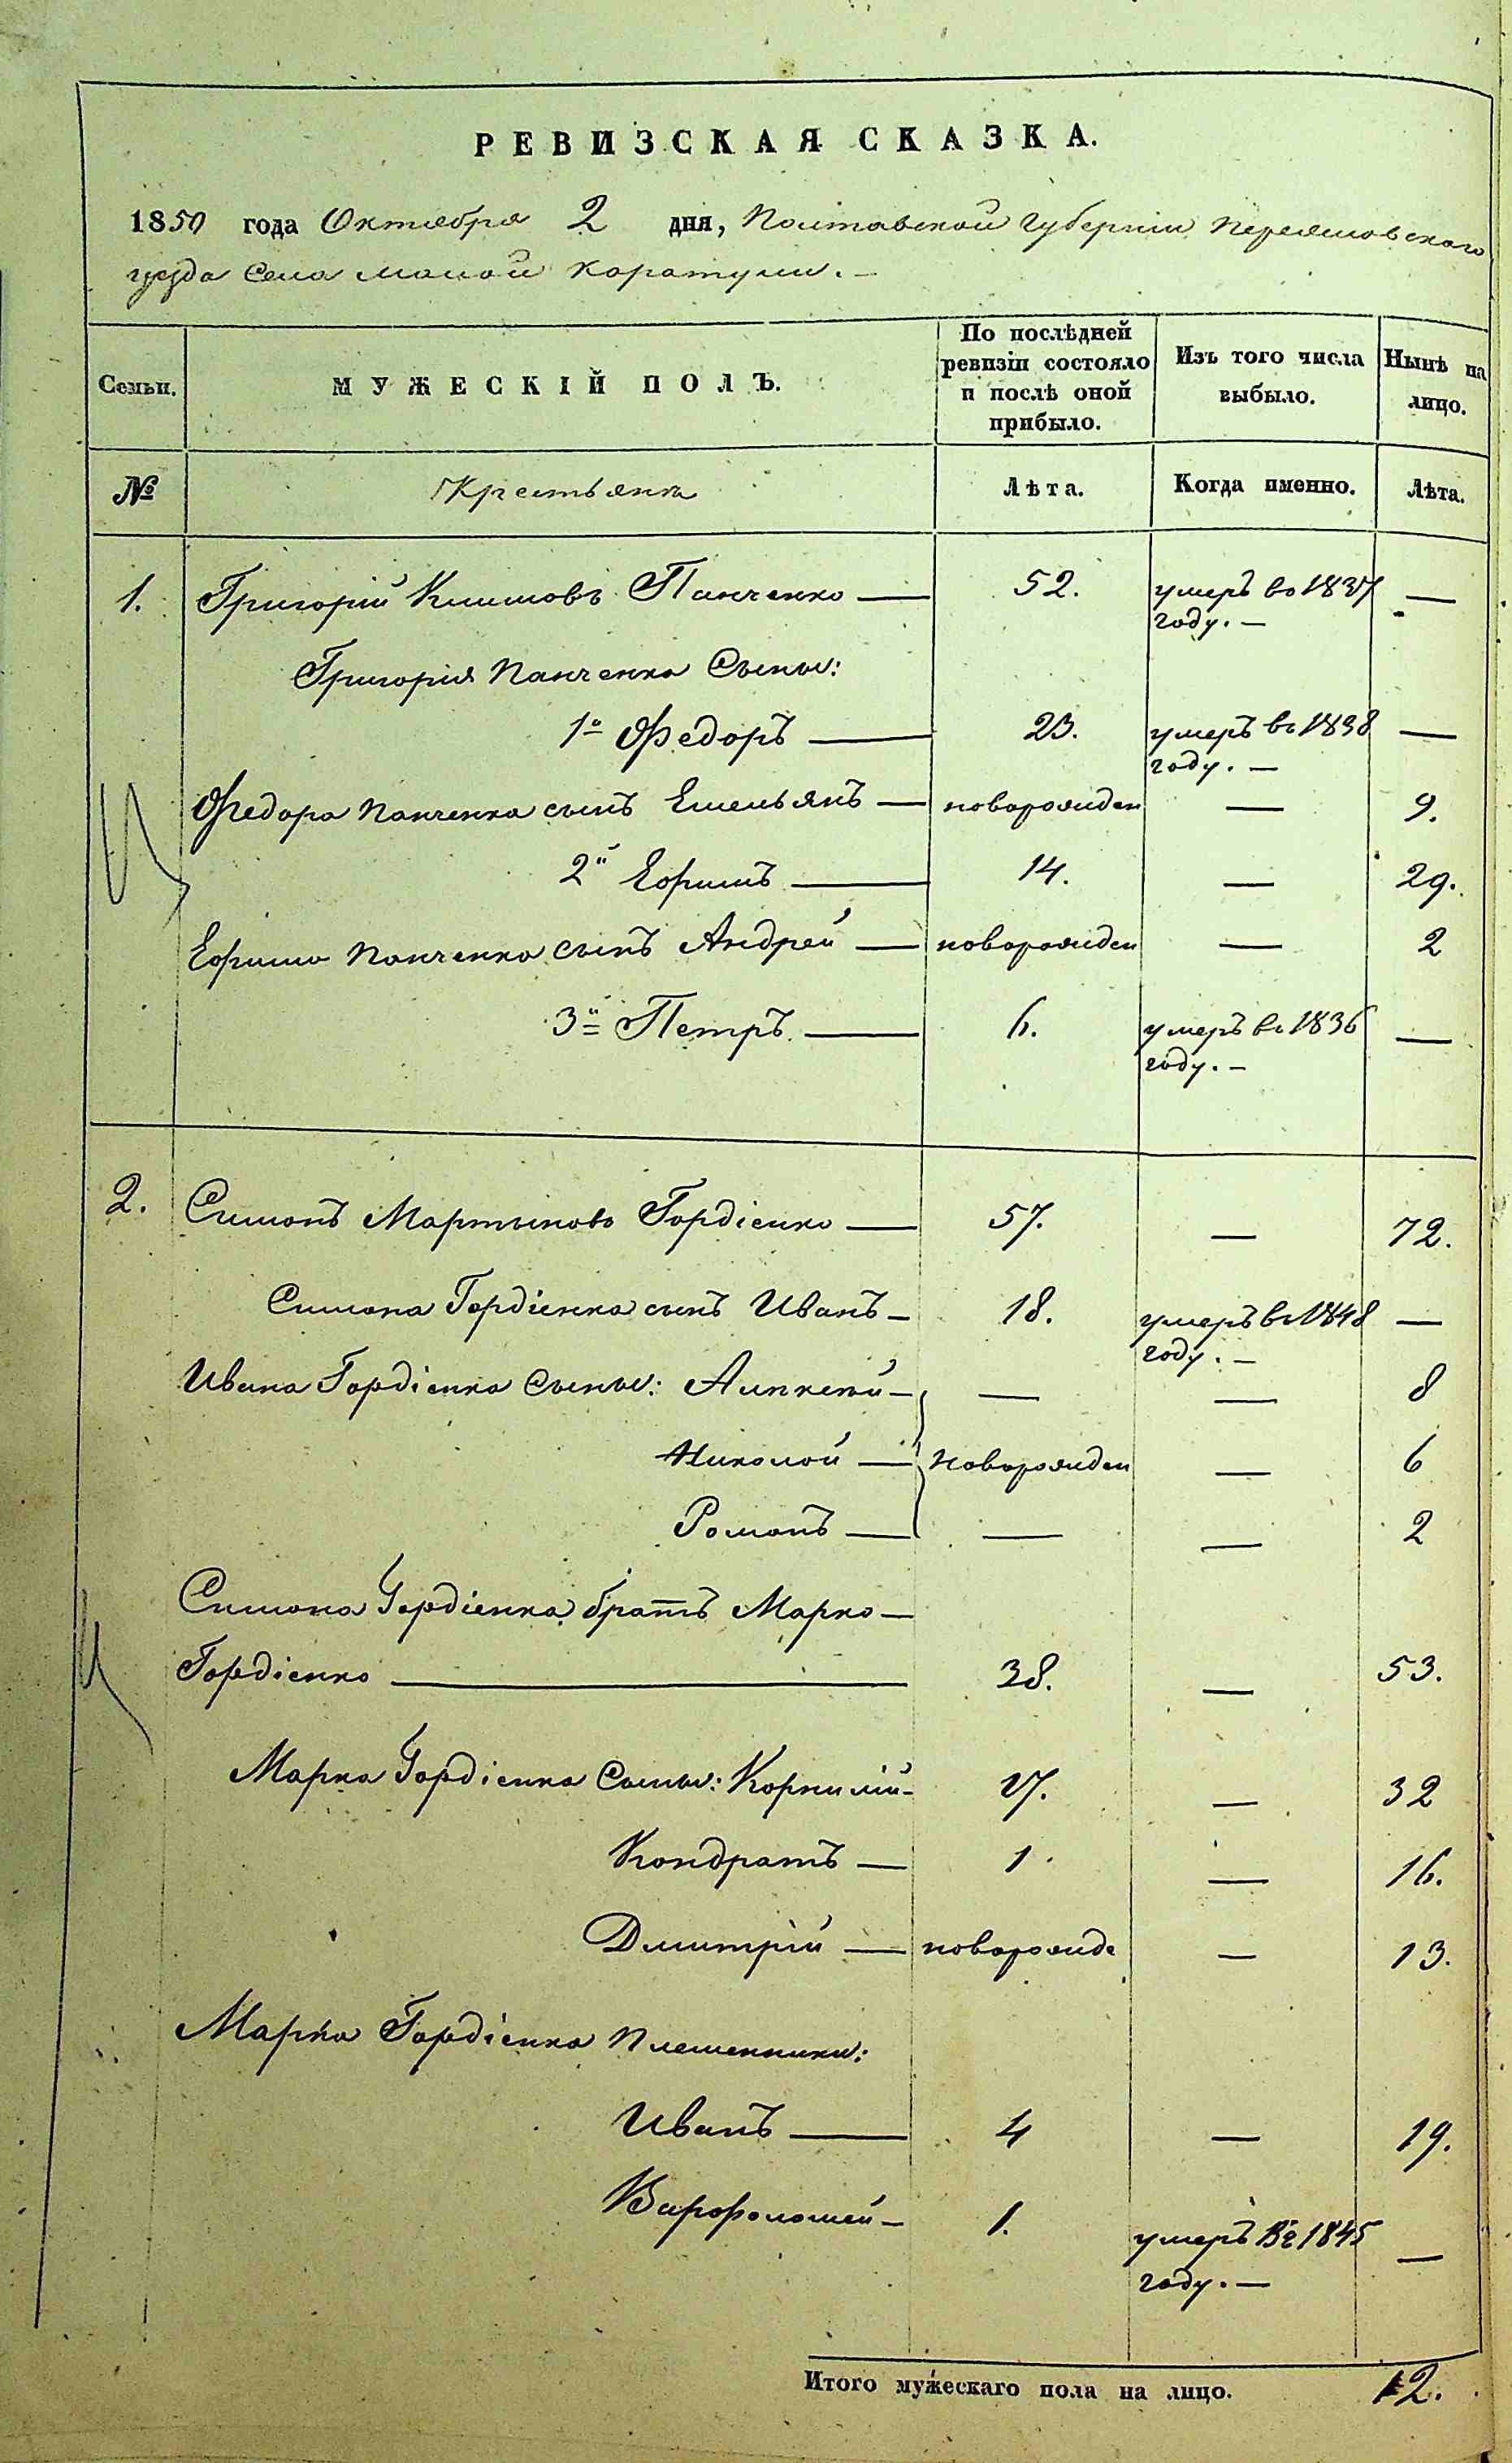 РЕВИЗСКАЯ СКАЗКА.
1850 года Октября 2 дня, Полтавской Губерніи Переяславского
уезда Села малой Каратули. —
Семьи. МУЖЕСКІЙ ПОЛЪ. По послѣдней ревизіи состояло и послѣ оной прибыло. Изъ того числа выбыло. Нынѣ на лицо.
№ Крестьянъ Лѣта. Когда именно. Лѣта.
1. Григорій Климовъ Панченко — 52. умеръ во 1837 году. — —
Григорія Панченка Сыны:
1й Федоръ — 23. умеръ въ 1838 году. — —
Федора Панченка сынъ Емельянъ — новорожден — 9.
2й Ефимъ — 14. — 29.
Ефима Панченка сынъ Андрей — новорожден — 2
3й Петръ. — 6. умеръ въ 1836 году. — —
2. Симонъ Мартыновъ Гордіенко — 57. — 72.
Симона Гордіенка сынъ Иванъ — 18. умеръ въ 1848 году. — —
Ивана Гордіенка Сыны: — — 8
Николай — Новорожден — 6
Романъ — — — 2
Симона Гордіенка братъ Марко —
Гордіенко — 38. — 53.
Марка Гордіенка Сыны: Корнилій — 17. — 32
Кондратъ — 1. — 16.
Дмитрій — новорожде — 13.
Марка Гордіенка Племенники:
Иванъ — 4 — 19.
Варфоломей — 1. умеръ Въ 1845 году. — —
Итого мужескаго пола на лицо. 12.